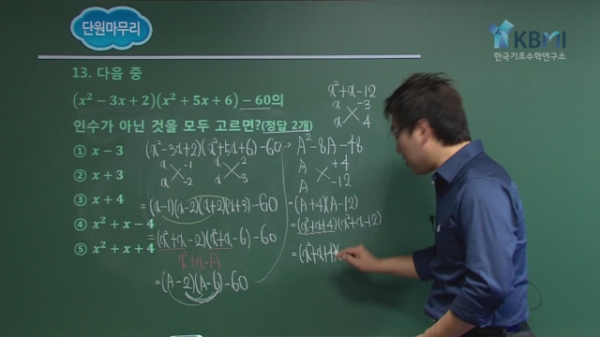 단원마무리
KBMI
한국기초수학연구소
13. 다음 중
(x² − 3x + 2)(x² + 5x + 6) − 60의
인수가 아닌 것을 모두 고르면?(정답 2개)
① x − 3
② x + 3
③ x + 4
④ x² + x − 4
⑤ x² + x + 4
(x²-3x+2)(x²+5x+6)-60
x -1
x -2
x 2
x 3
=(x-1)(x-2)(x+2)(x+3)-60
=(x²+x-2)(x²+x-6)-60
x²+x=A
=(A-2)(A-6)-60
x²+x-12
x -3
x 4
A²-8A-48
A +4
A -12
=(A+4)(A-12)
=(x²+x+4)(x²+x-12)
=(x²+x+4)